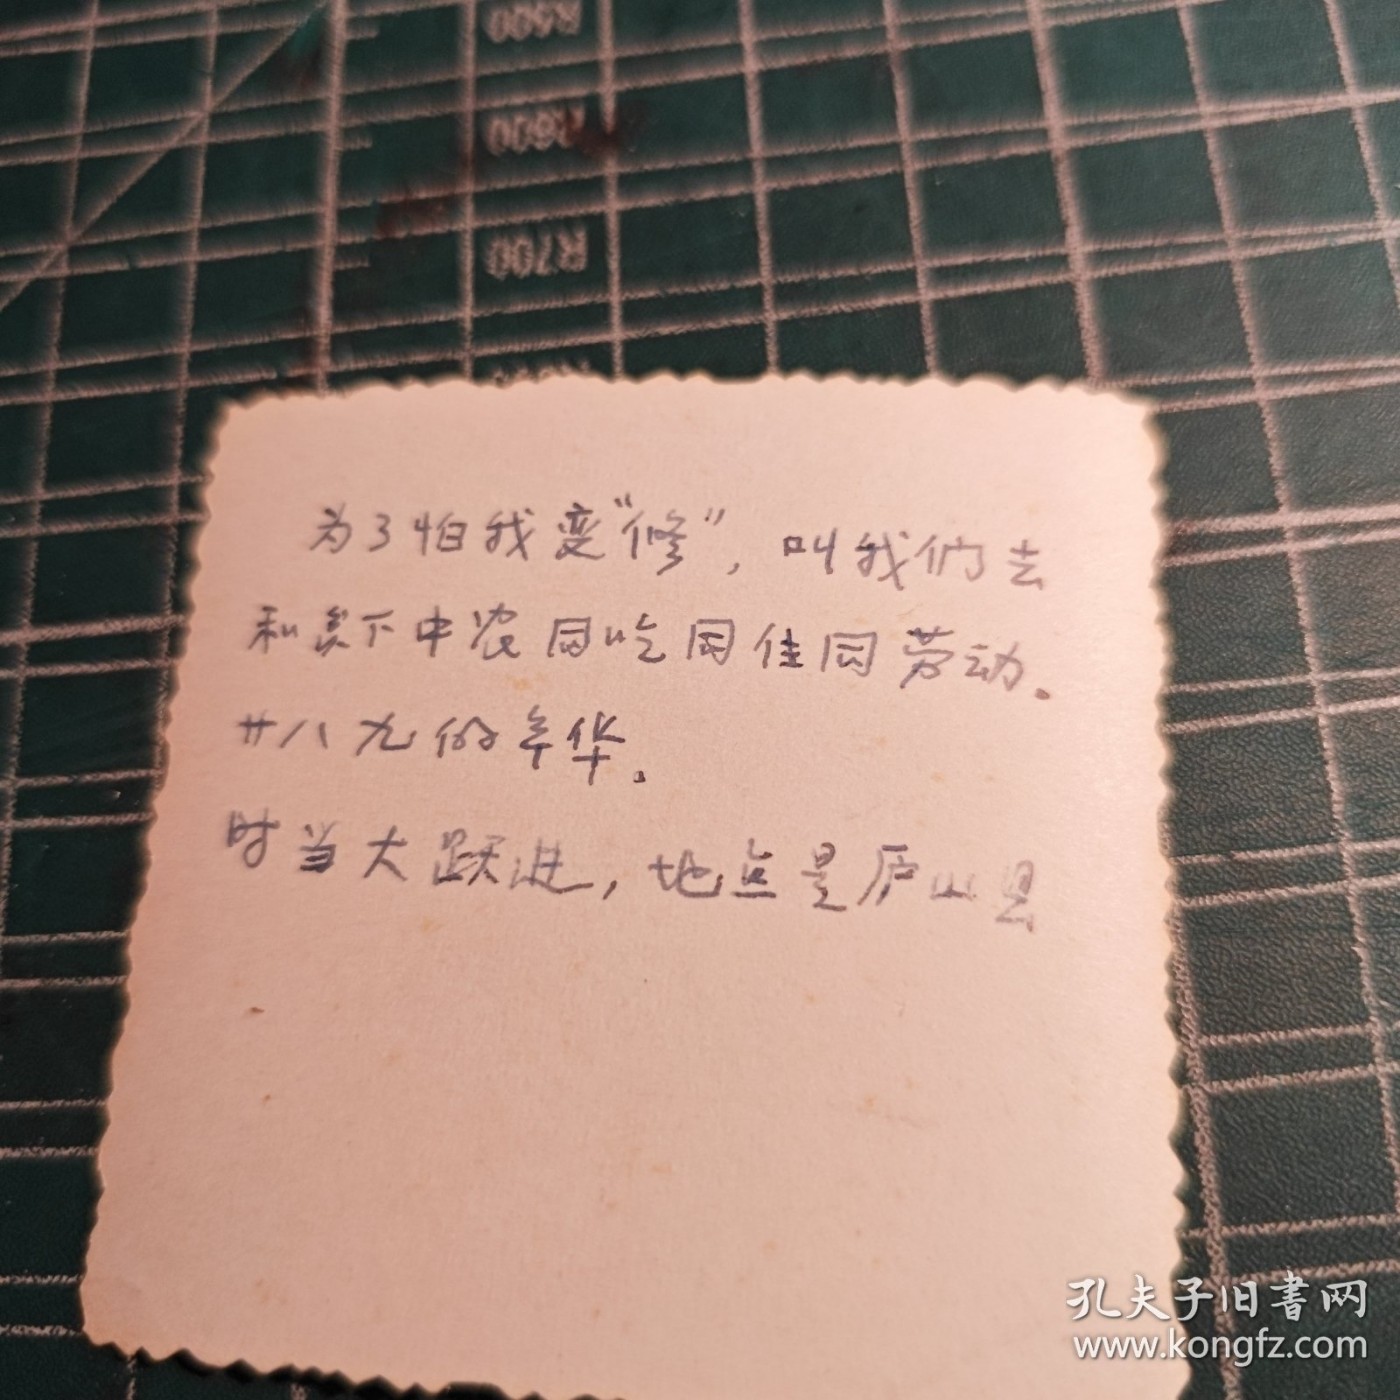 R500
R600
R700
为了怕我变“修”，叫我们去
和贫下中农同吃同住同劳动。
廿八九的年华。
时当大跃进，地点是庐山县
孔夫子旧書网
www.kongfz.com